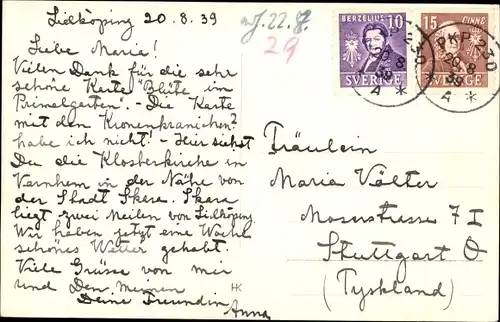 Lidköping 20.8.39
Liebe Maria!
Vielen Dank für die sehr
schöne Karte "Blüte im
Primelgarten". - Die Karte
mit den Kronenkranichen?
habe ich nicht! - Hier siehst
Du die Klosterkirche in
Varnhem in der Nähe von
der Stadt Skara. Skara
liegt zwei Meilen von Lidköping.
Wir haben jetzt eine Woche
schönes Wetter gehabt.
Viele Grüsse von mir
und Den Meinen
Deine Freundin
Anna
HK
22. 8.
29
BERZELIUS 10
SVERIGE
15 LINNÉ
SVERIGE
PKP 230
20.8
39
* A *
Fräulein
Maria Völter
Moserstrasse 7 I
Stuttgart O
(Tyskland)